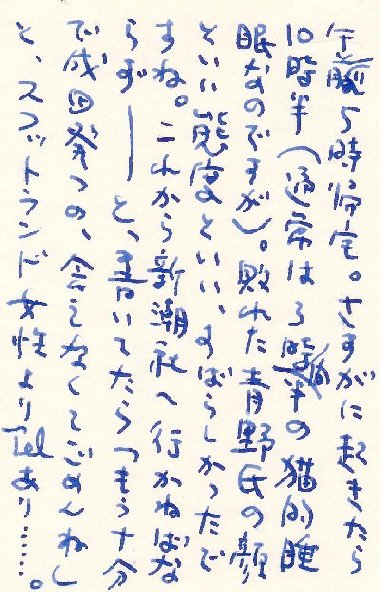 午前5時帰宅。さすがに起きたら
10時半(通常は3時間の猫的睡
眠なのですが)。敗れた青野氏の顔
といい態度といい、すばらしかったで
すね。これから新潮社へ行かねばな
らず——と、書いてたら「もう十分
で成田発つの、会えなくてごめんね」
と、スコットランド女性よりTelあり……。